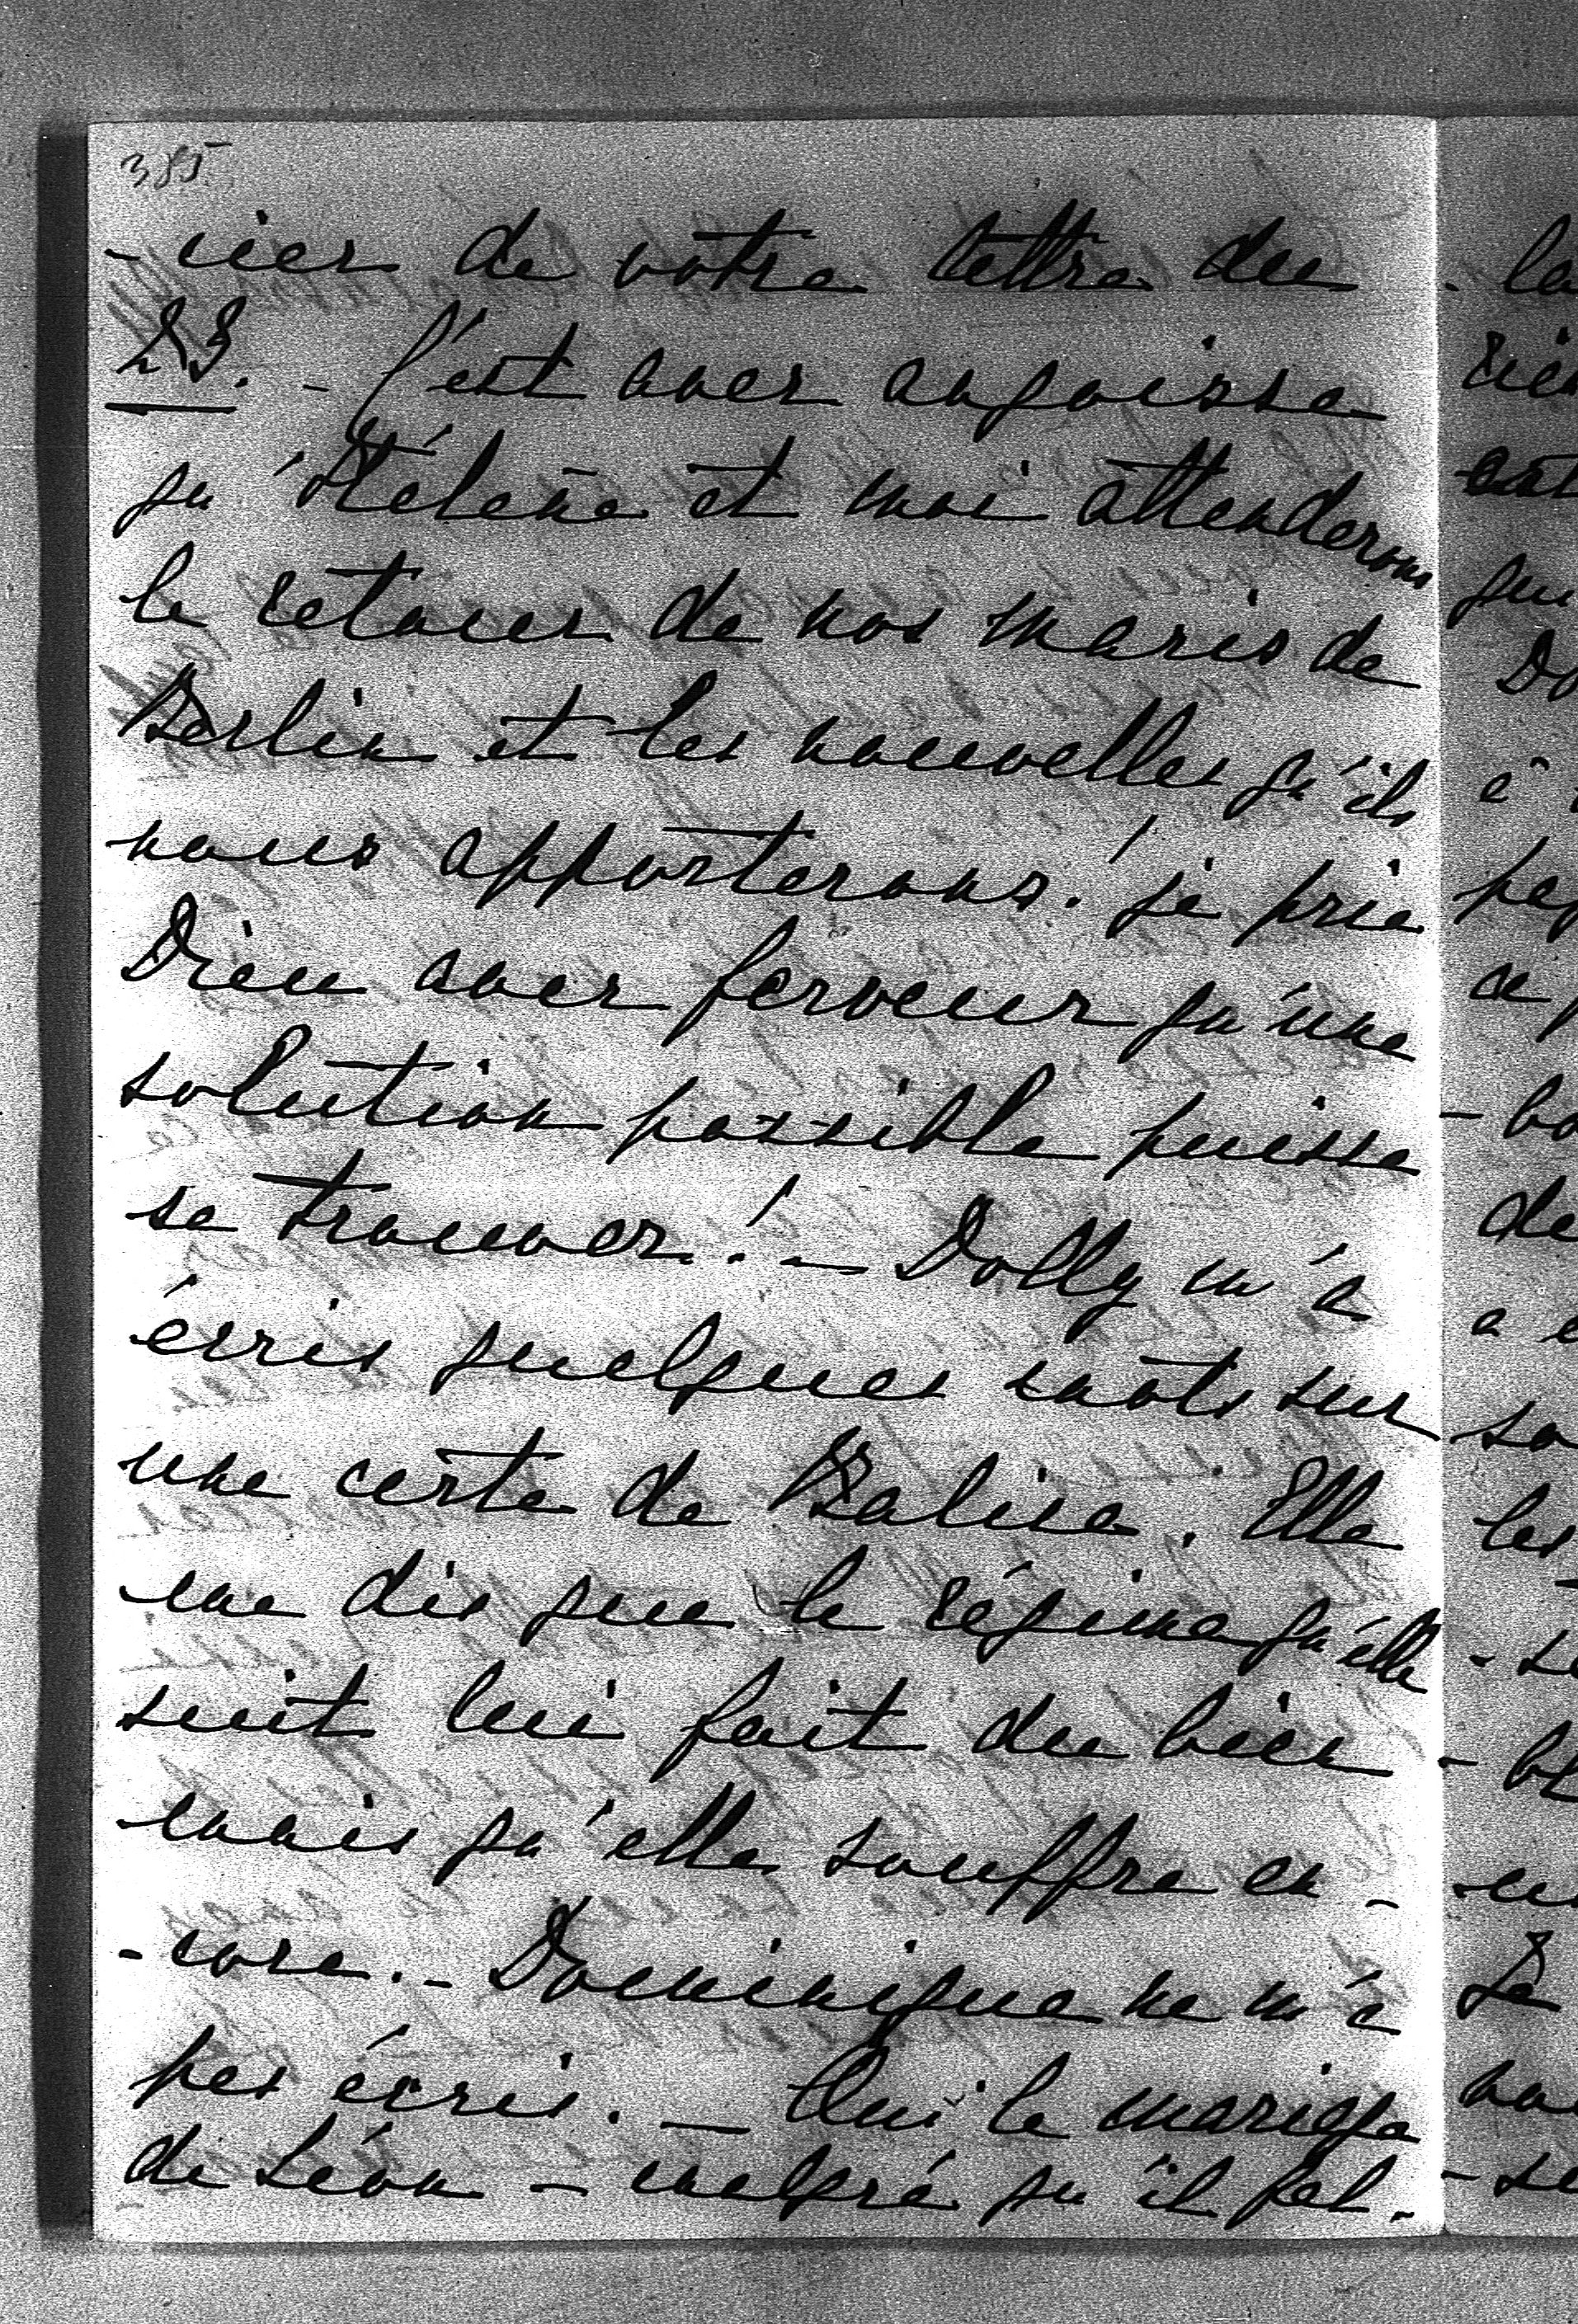 385
- cier de votre lettre du
23. - C'est avec angoisse
qu'Hélène et moi attenderons
le retour de nos maris de
Berlin et les nouvelles qu'ils
nous apporterons! je prie
Dieu avec ferveur qu'une
solution possible puisse
se trouver! - Dolly m'a
écris quelques mots sur
une carte de Valise. Elle
me dis que le régime qu'elle
suit lui fait du bien
mais qu'elle souffre en -
- core. - Dominique ne m'a
pas écris. - Oui le mariage
de Léon - malgré qu'il fal -